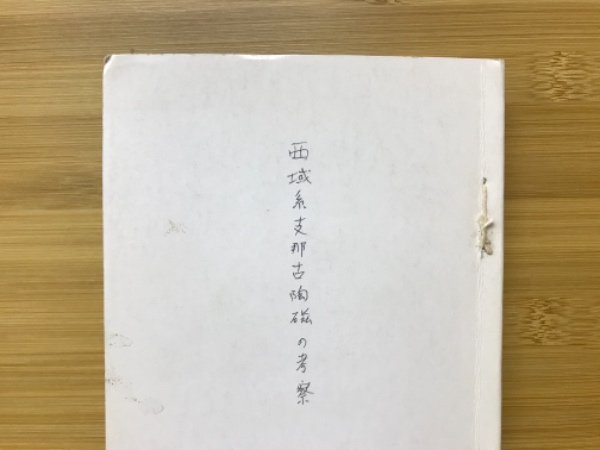 西域系支那古陶磁の考察